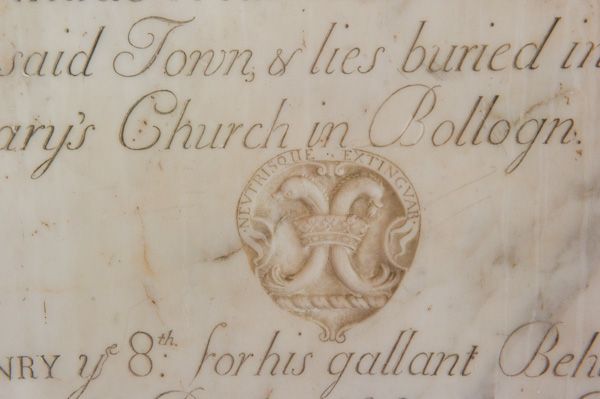 said Town, & lies buried in
ary's Church in Bollogn.
NEVTRISQUE · EXTINGVAR
NRY yᵉ 8.ᵗʰ for his gallant Beh